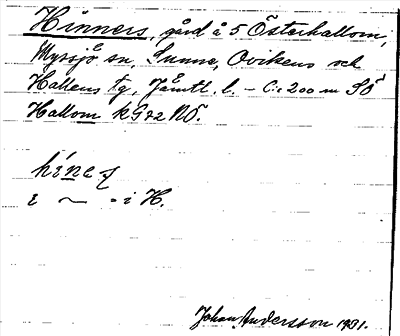 Hinners, gård å 5 Österhallom,
Myssjö sn, Sunne, Ovikens och
Hallens tg, Jämtl. l. – C:a 200 m SÖ
Hallom kG72 NÖ.
híneſ
i ~ - i H.
Johan Andersson 1931.